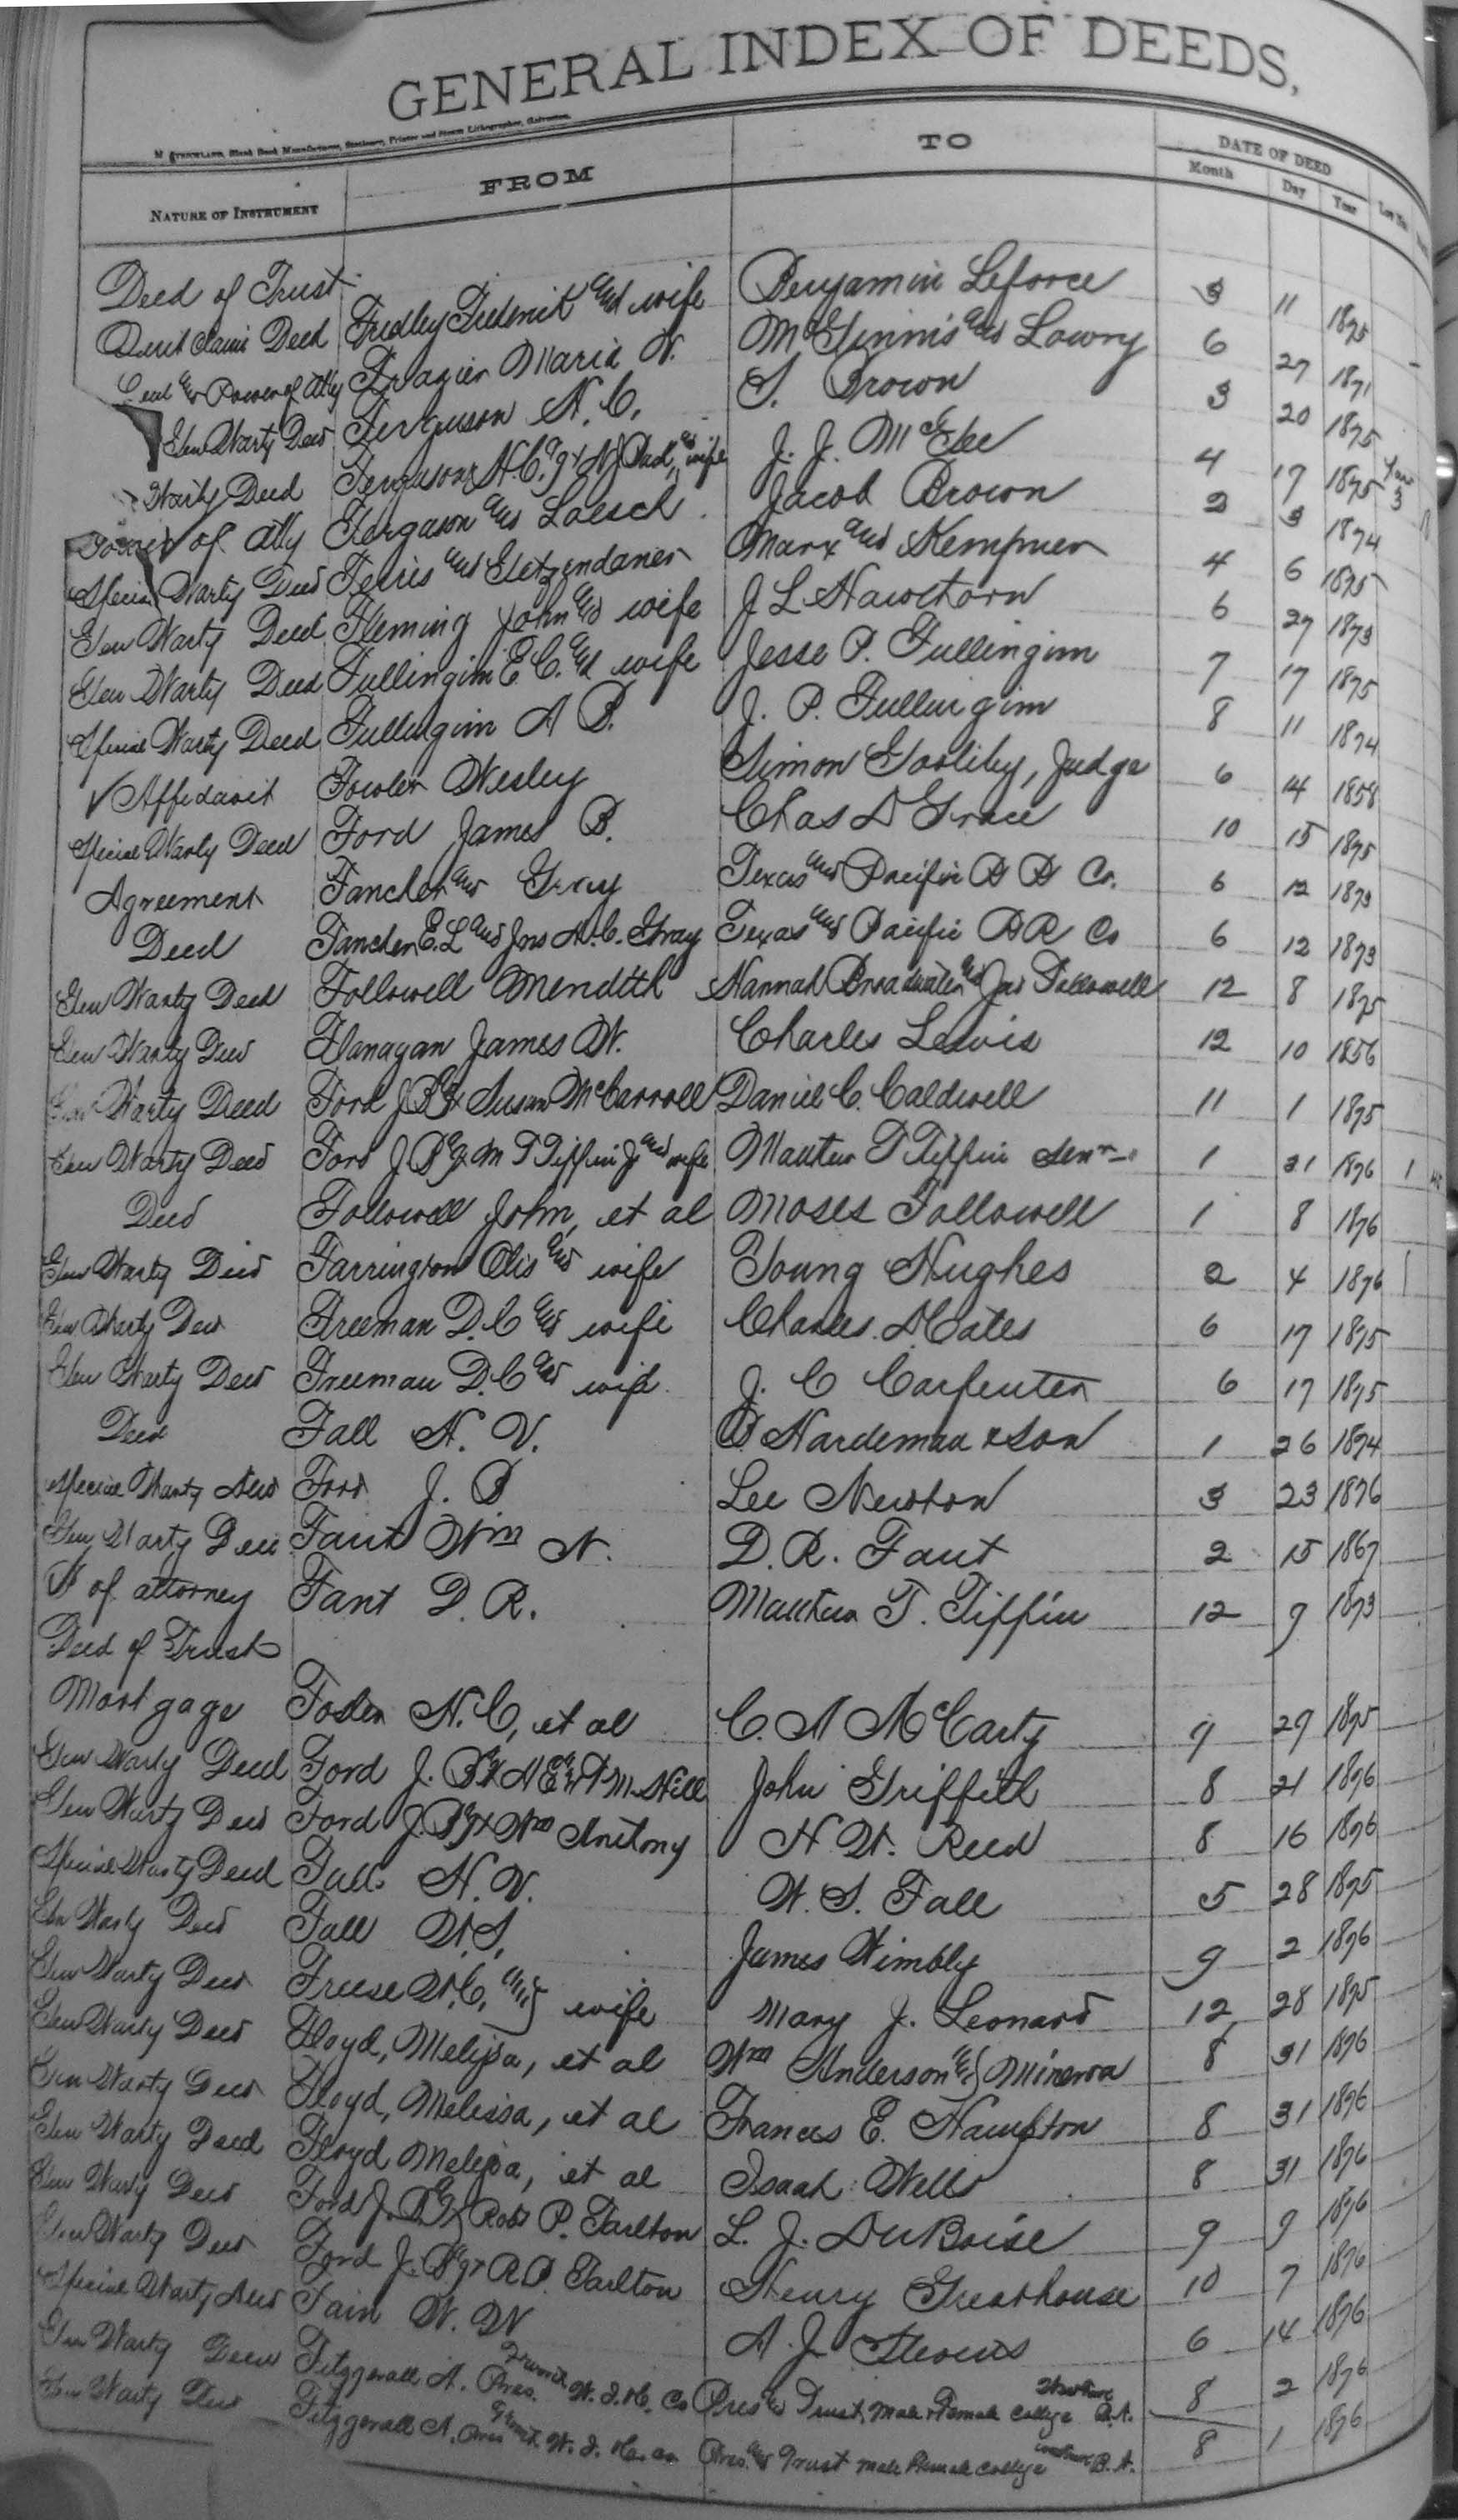 GENERAL INDEX OF DEEDS,
M STRICKLAND, Blank Book Manufacturer, Stationer, Printer and Steam Lithographer, Galveston.
NATURE OF INSTRUMENT FROM TO DATE OF DEED
Month Day Year
Deed of Trust Fridley Frederick and wife Benjamin Leforce 3 11 1875
Quit Claim Deed Frazier Maria N. McGinnis and Lowry 6 27 1871
Power of Atty Ferguson N. C. S. Brown 3 20 1875
Gen Warty Deed Ferguson N. C. wife J. J. McGhee 4 17 1875
Warty Deed Fergason and Loesch Jacob Brown 2 3 1874
of Atty Ferris and Getzendaner Marx and Kempner 4 6 1875
Special Warty Deed Fleming John and wife J L Hawthorn 6 27 1873
Gen Warty Deed Fullingim E. C. and wife Jesse P. Fullingim 7 17 1875
Gen Warty Deed Fullingim A B. J. P. Fullingim 8 11 1874
Special Warty Deed Fowler Wesley Simon Judge 6 14 1858
Affidavit Ford James B. Chas D Grace 10 15 1875
Special Warty Deed Fancher and Gray Texas and Pacific R R Co. 6 12 1873
Agreement Fancher E. L and Jno A. C. Gray Texas and Pacific RR Co 6 12 1873
Deed Followell Meredith Hannah Broadwater and Jas Followell 12 8 1875
Gen Warty Deed Flanagan James W. Charles Lewis 12 10 1856
Gen Warty Deed Ford J B & Susan McCarroll Daniel C. Caldwell 11 1 1875
Gen Warty Deed Ford J. B. M T Tiffin Jr and wife T Tiffin Senr 1 31 1876 1
Gen Warty Deed Followell John, et al Moses Followell 1 8 1876
Deed Farrington Otis and wife Young Hughes 2 4 1876
Gen Warty Deed Freeman D. C and wife Charles Cates 6 17 1875
Gen Warty Deed Freeman D. C and wife J. C Carpenter 6 17 1875
Gen Warty Deed Fall N. V. B Hardeman & Son 1 26 1874
Deed Ford J. B Lee Newton 3 23 1876
Special Warty Deed Fant Wm N. D. R. Fant 2 15 1867
Gen Warty Deed Fant D. R. T. Tiffin 12 9 1873
P of attorney
Deed of Trust
Mortgage Foster N. C, et al C. A McCarty 9 29 1875
Gen Warty Deed Ford J. B Hill John Griffith 8 21 1876
Gen Warty Deed Ford J. B Wm Anthony H. W. Reed 8 16 1876
Special Warty Deed Fall N. V. W. S. Fall 5 28 1875
Gen Warty Deed Fall W. S. James Wimbly 9 2 1876
Gen Warty Deed Freese W. C. and wife Mary J. Leonard 12 28 1875
Gen Warty Deed Floyd, Melissa, et al Wm Anderson and Minerva 8 31 1876
Gen Warty Deed Floyd, Melissa, et al Frances E. Hampton 8 31 1876
Gen Warty Deed Floyd Melissa, et al Isaah Wells 8 31 1876
Gen Warty Deed Ford J. B Robt P. Tarlton L. J. DuBoise 9 9 1876
Gen Warty Deed Ford J. B R. P. Tarlton Henry Greathouse 10 7 1876
Special Warty Deed Fain W. W A. J Stevens 6 14 1876
Gen Warty Deed Fitzgerald A. Pres. Co Pres and Trust. Male & Female College 8 2 1876
Gen Warty Deed Fitzgerald A. Pres Co Pres. and Trust Male Female College 8 1 1876